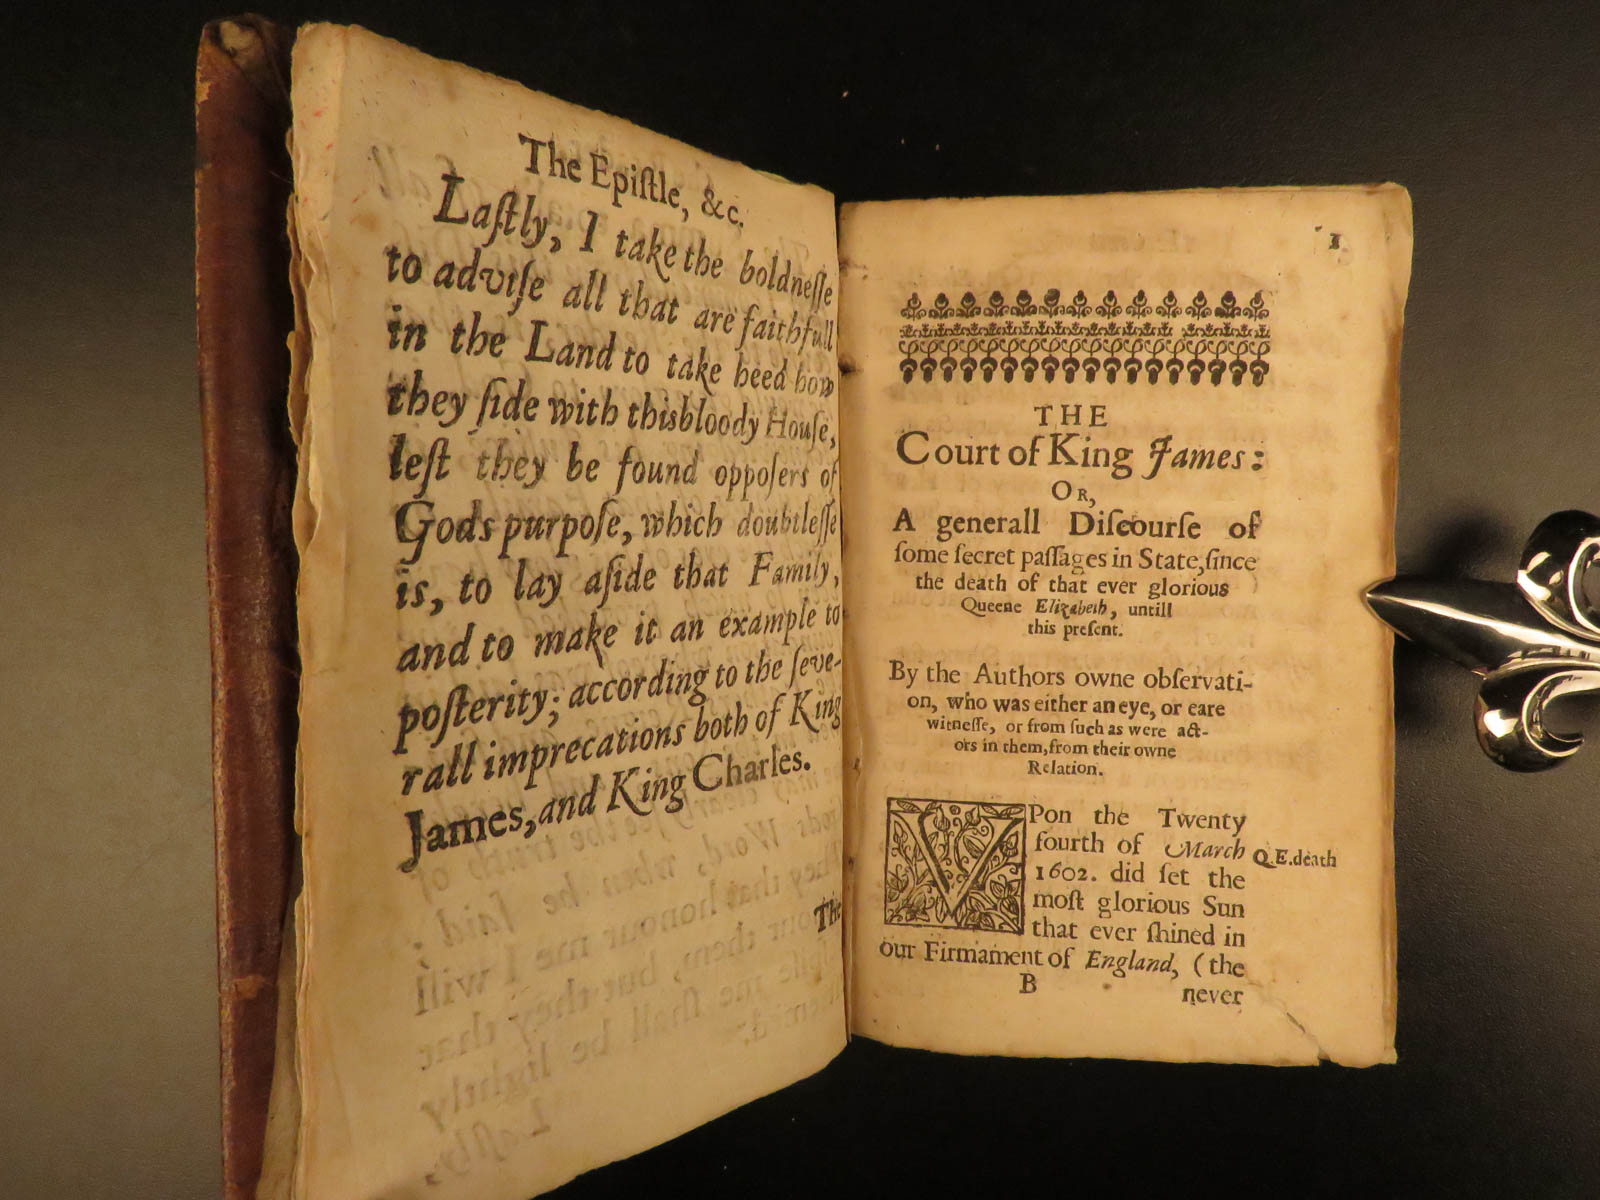 The Epiſtle, &c.
Laſtly, I take the boldneſſe
to adviſe all that are faithfull
in the Land to take heed how
they ſide with thisbloody Houſe,
leſt they be found oppoſers of
Gods purpoſe, which doubtleſſe
is, to lay aſide that Family,
and to make it an example to
poſterity; according to the ſeve-
rall imprecations both of King
James, and King Charles.
The
1
THE
Court of King James:
OR,
A generall Diſcourſe of
ſome ſecret paſſages in State, ſince
the death of that ever glorious
Queene Elizabeth, untill
this preſent.
By the Authors owne obſervati-
on, who was either an eye, or eare
witneſſe, or from ſuch as were act-
ors in them, from their owne
Relation.
VPon the Twenty
fourth of March
Q.E.death
1602. did ſet the
moſt glorious Sun
that ever ſhined in
our Firmament of England, (the
B
never